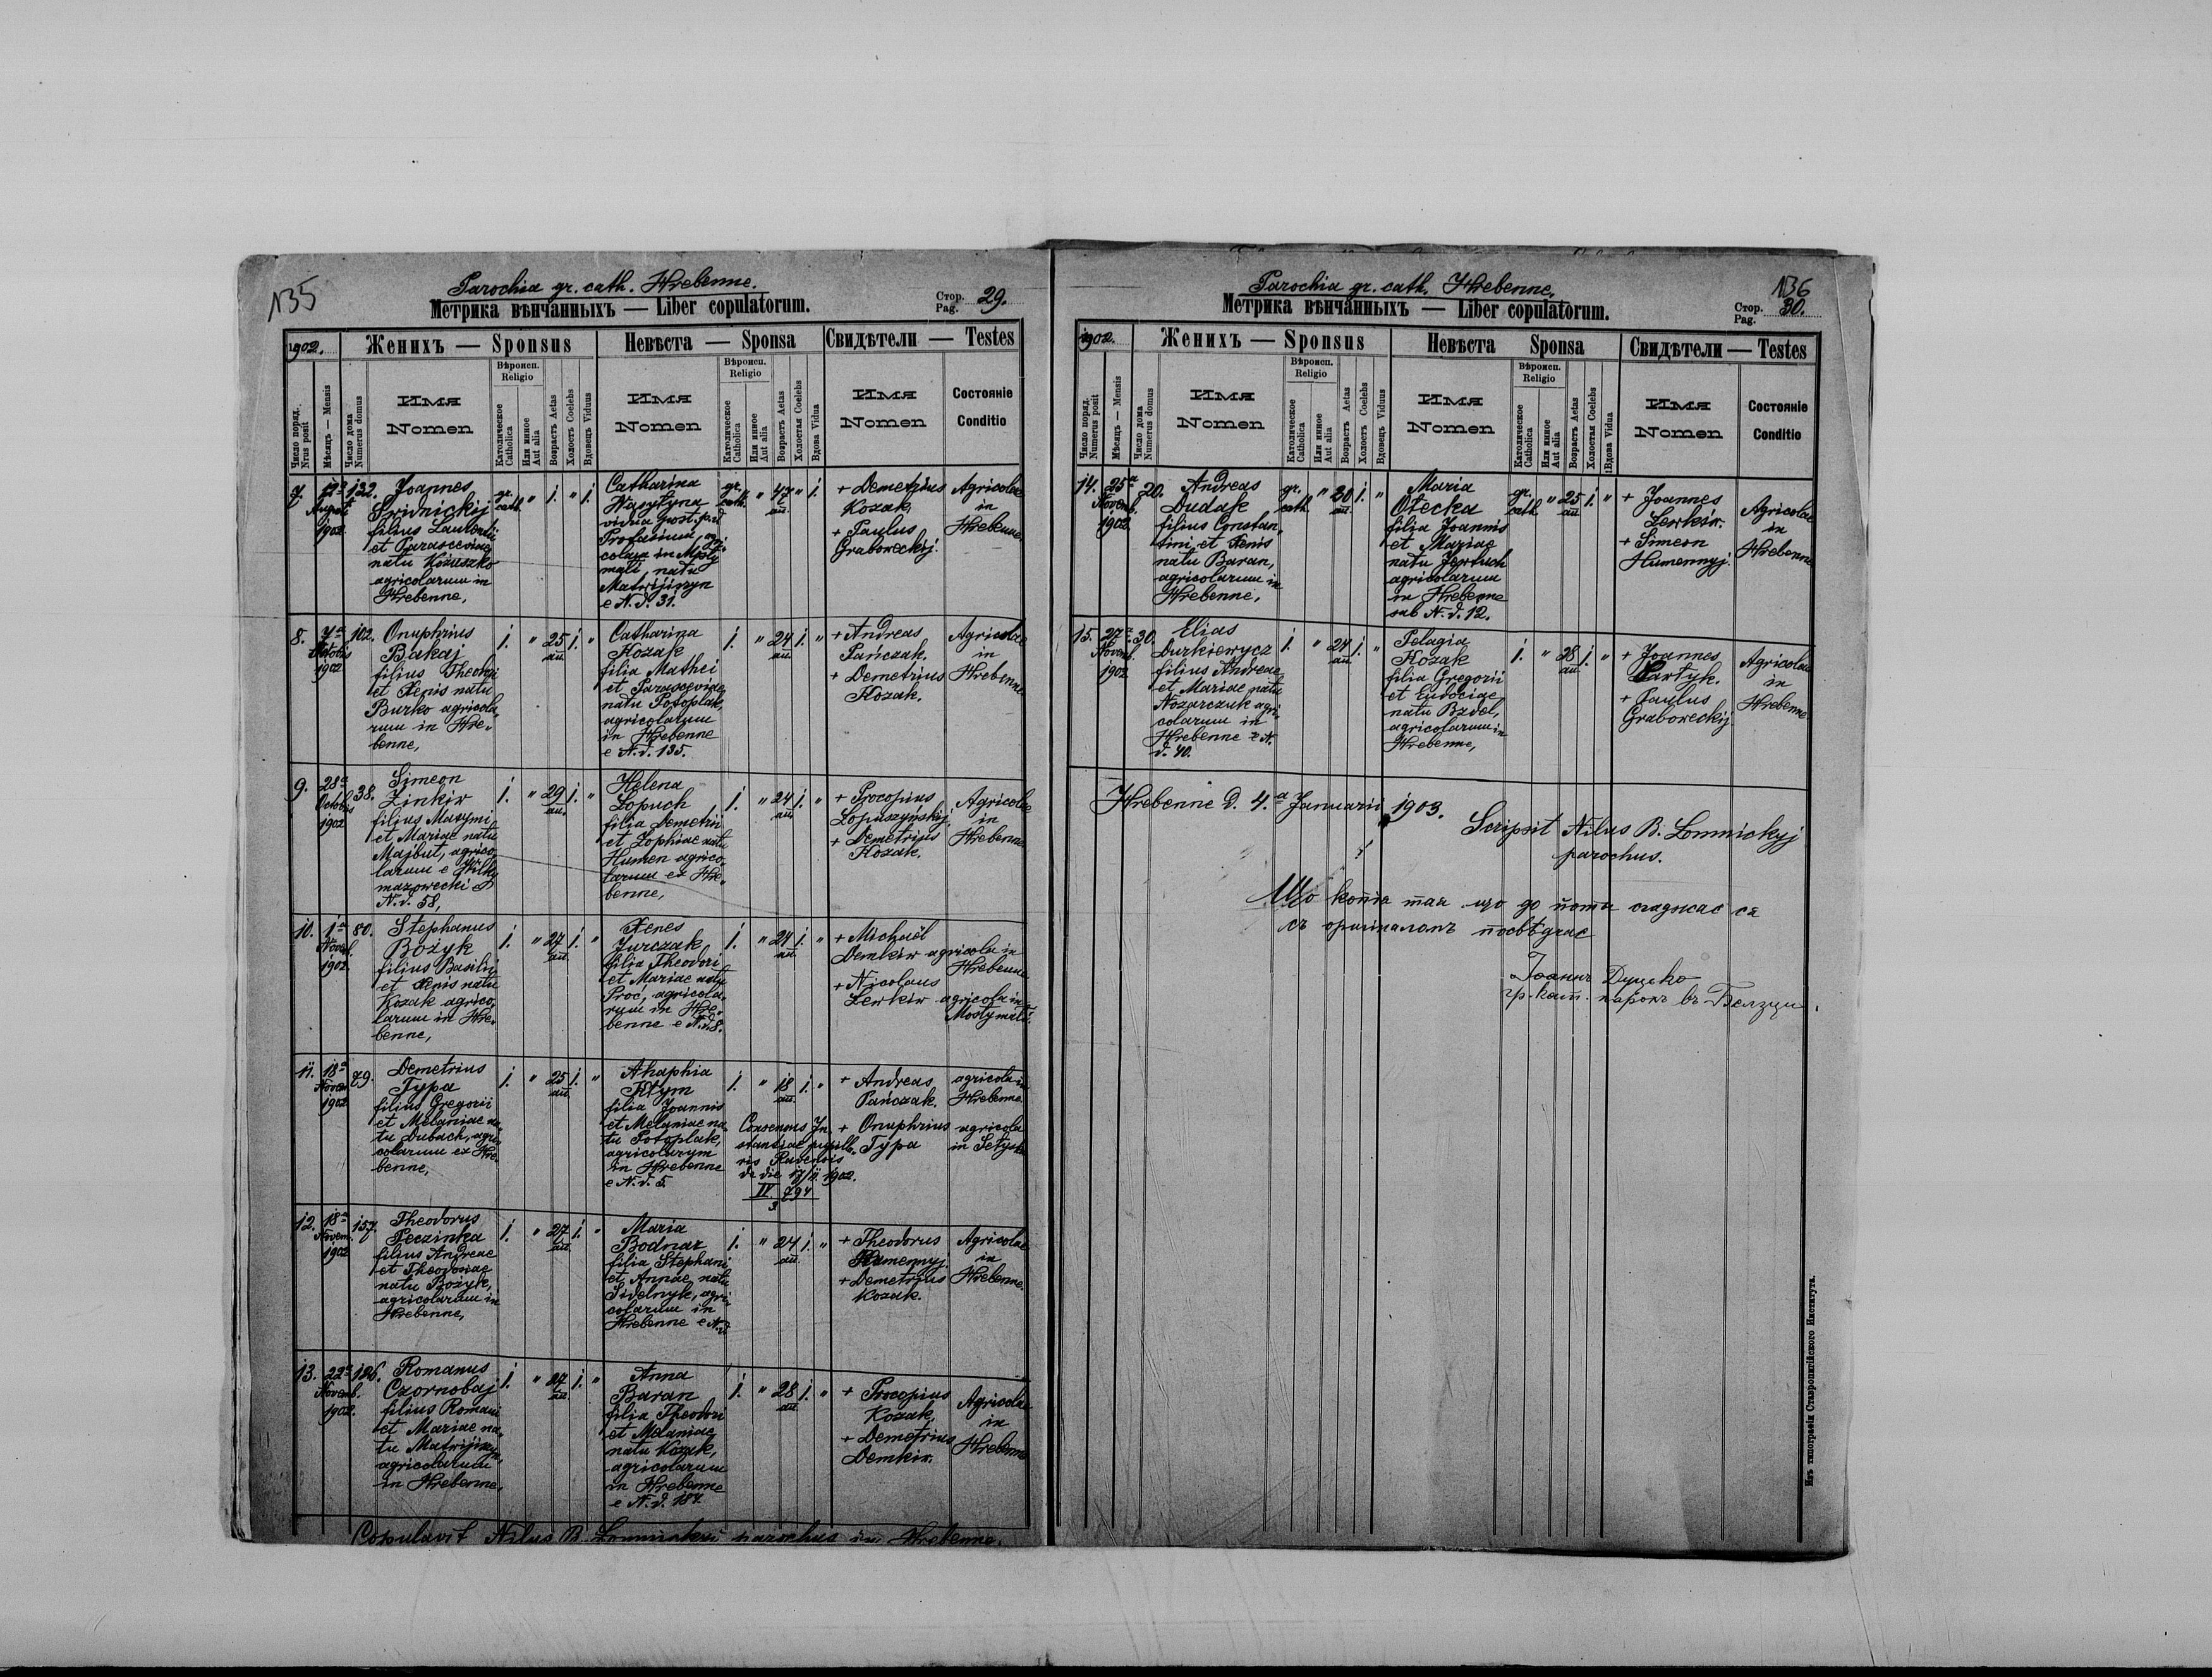 135
Parochia gr. cath. Hrebenne.
Метрика вѣнчанныхъ — Liber copulatorum.
Стор.
Pag. 29.
1902.
Женихъ — Sponsus
Невѣста — Sponsa
Свидѣтели — Testes
Число поряд.
Nrus posit
Мѣсяцъ — Mensis
Число дома
Numerus domus
Имя
Nomen
Вѣроисп.
Religio
Католическое
Catholica
Или инное
Aut alia
Возрастъ Aetas
Холостъ Coelebs
Вдовецъ Viduus
Имя
Nomen
Вѣроисп.
Religio
Католическое
Catholica
Или инное
Aut alia
Возрастъ Aetas
Холостая Coelebs
Вдова Vidua
Имя
Nomen
Состояніе
Conditio
7.
August
1902
132.
Joannes
Sridnickij
filius
et Parasceviae
natu Kozuszko
agricolarum in
Hrebenne,
gr.
cath.
" 1. " 1.
Catharina
Wasytyna
vidua post. p.d
colam in Mosty
mali, natu
Matwijiszyn
e N. d. 31.
gr.
cath.
" 47 " 1.
an.
+ Demetrius
Kozak,
+ Paulus
Graboreckij.
Agricolae
in
Hrebenne
8.
7a
Octobris
1902
102.
Onuphrius
Bakaj
filius Theodori
et Xenis natu
Burko agricola,
rum in Hre,
benne,
1. " 25 1. "
an.
Catharina
Kozak
filia Mathei
et Parasceviae
natu Potoplak,
agricolarum
in Hrebenne
e N. d. 135.
1. " 24 1. "
an.
+ Andreas
Pańczak.
+ Demetrius
Kozak.
Agricolae
in
Hrebenne
9.
28a
Octobris
1902
38.
Simeon
Zinkiw
filius Maxymi
et Mariae natu
Majbut, agrico,
larum e
mazowecki
N. d. 58,
1. " 29 1. "
an.
Helena
Lopuch
filia Demetrii
et Zophiae natu
Humen agrico,
larum ex Hre,
benne,
1. " 24 1. "
an.
+ Procopius
Lopuszynskij.
+ Demetrius
Kozak.
Agricolae
in
Hrebenne
10.
1a
Novemb.
1902.
80.
Stephanus
Bożyk
filius Basilii
et Xenis natu
Kozak agrico,
larum in Hre,
benne,
1. " 27 1. "
an.
Xenes
Jurczak
filia Theodori
et Mariae natu
Proć, agricola,
rum in Hre,
benne e N. d. 8.
1. " 24 1. "
an.
+ Michaël
Demkiw agricola in
Hrebenne
+ Nicolaus
Lewkiw agricola in
Mosty mali.
11.
18a
Novem.
1902
79.
Demetrius
Typa
filius Gregorii
et Melaniae na,
tu Dubach, agri,
colarum ex Hre,
benne,
1. " 25 1. "
an.
Ahaphia
Klym
filia Joannis
et Melaniae na,
tu Potoplak,
agricolarum
in Hrebenne
e N. d. 5.
1. " 18 1. "
an.
Consensus In,
stantiae pupilla,
ris Ravensis
de die 17/11 1902.
IV. 794
3
+ Andreas
Pańczak.
+ Onuphrius
Typa
agricola in
Hrebenne.
agricola
in
12.
18a
Novem.
1902
157.
Theodorus
Peczinka
filius Andreae
et Theodosiae
natu Bożyk,
agricolarum in
Hrebenne,
1. " 27 1. "
an.
Maria
Bodnar
filia Stephani
et Annae natu
Sidelnyk, agri,
colarum in
Hrebenne e N. d.
1. " 24 1. "
an.
+ Theodorus
Humennyj.
+ Demetrius
Kozak.
Agricolae
in
Hrebenne.
13.
22a
Novemb.
1902.
186.
Romanus
Czornobaj
filius Romani
et Mariae na,
tu Matwijiszyn,
agricolarum
in Hrebenne,
1. " 27 1. "
an.
Anna
Baran
filia Theodori
et Melaniae
natu Kozak,
agricolarum
in Hrebenne
e N. d. 187.
1. " 28 1. "
an.
+ Procopius
Kozak,
+ Demetrius
Demkiw.
Agricolae
in
Hrebenne
Copulavit Nilus B. Lomnickyj parochus in Hrebenne.
136
Parochia gr. cath. Hrebenne.
Метрика вѣнчанныхъ — Liber copulatorum.
Стор.
Pag. 30.
1902.
Женихъ — Sponsus
Невѣста Sponsa
Свидѣтели — Testes
Число поряд.
Numerus posit
Мѣсяцъ — Mensis
Число дома
Numerus domus
Имя
Nomen
Вѣроисп.
Religio
Католическое
Catholica
Или инное
Aut alia
Возрастъ Aetas
Холостъ Coelebs
Вдовецъ Viduus
Имя
Nomen
Вѣроисп.
Religio
Католическое
Catholica
Или инное
Aut alia
Возрастъ Aetas
Холостая Coelebs
Вдова Vidua
Имя
Nomen
Состояніе
Conditio
14.
25a
Novemb.
1902.
20.
Andreas
Dudak
filius Constan,
tini et Xenis
natu Baran,
agricolarum in
Hrebenne,
gr.
cath.
" 30 1. "
an.
Maria
Otecka
filia Joannis
et Mariae
natu Jertuch
agricolarum
in Hrebenne
sub N. d. 12.
gr.
cath.
" 25 1. "
an.
+ Joannes
Lewkiw.
+ Simeon
Humennyj.
Agricolae
in
Hrebenne
15.
27a
Novemb.
1902.
30.
Elias
Durkiewycz
filius Andreae
et Mariae natu
Nazarczuk agri,
colarum in
Hrebenne e N.
d. 40.
1. " 24 1. "
an.
Pelagia
Kozak
filia Gregorii
et Eudociae
natu Bzdel,
agricolarum in
Hrebenne,
1. " 28 1. "
an.
+ Joannes
+ Paulus
Graboreckij
Agricolae
in
Hrebenne.
Hrebenne d. 4.a Januarii 1903.
Scripsit Nilus B. Lomnickyj
parochus.
Що копія тая що до йоти згаджає ся
съ оригиналомъ посвѣдчає
Іоаннъ Дуцько
гр. кат. парохъ въ Белзци
Изъ типографіи Ставропигійского Института.